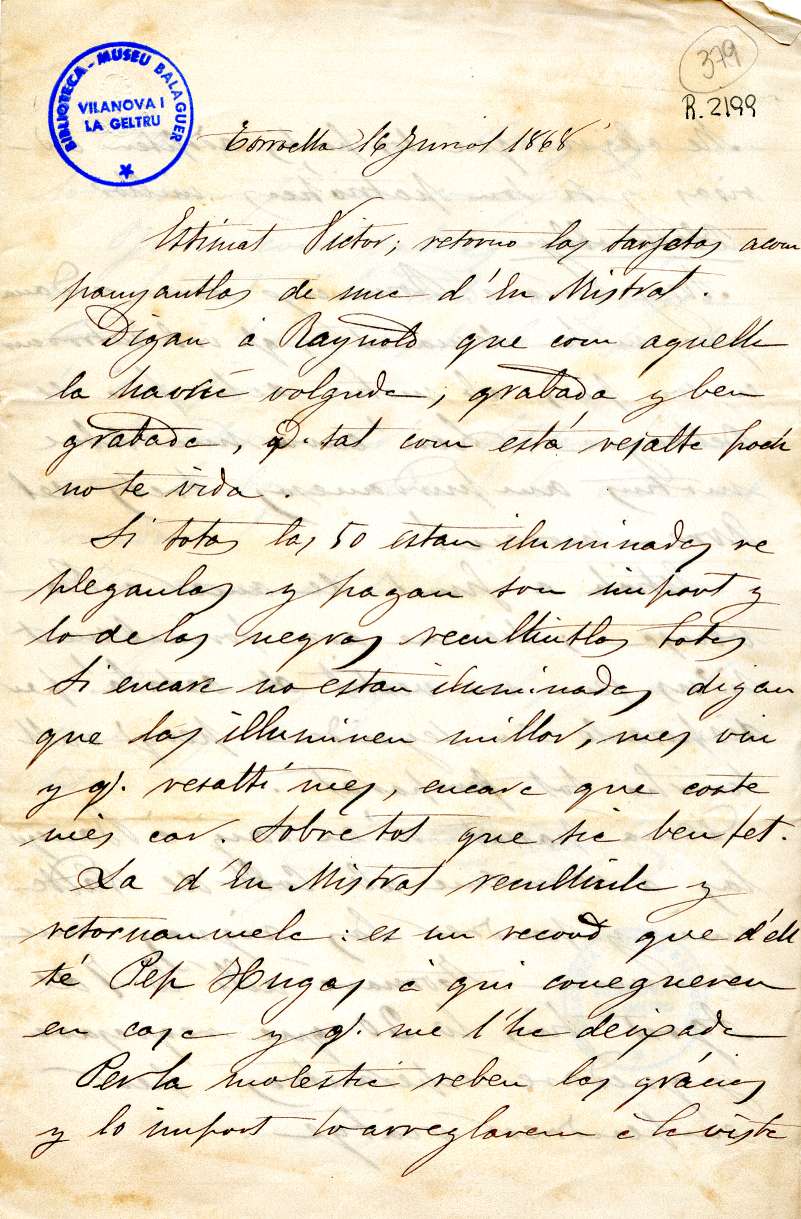 BIBLIOTECA - MUSEU BALAGUER
VILANOVA I
LA GELTRU
379
R. 2199
Torroella 16 Juriol 1868
Estimat Victor; retorno las tarjetas acom
panyantlas de una d'En Mistral.
Digan á Raynold que com aquella
la hauria volguda; grabada y ben
grabada, q. tal com está resalta poch
no te vida.
Si totas las 50 estan iluminadas re
plegaulas y pagan son import y
lo de las negras recullintlas totas
Si encara no estan iluminadas digan
que las illuminen millor, mes viu
y q. resalti mes, encara que coste
mès car. Sobretot que sie ben fet.
La d'En Mistral recullinla y
retornaumela: es un recort que d'ell
té Pep Hugas á qui coneguerem
en casa y q. me l'ha deixada
Per la molestia reben las grácias
y lo import lo arreglarem á la vista